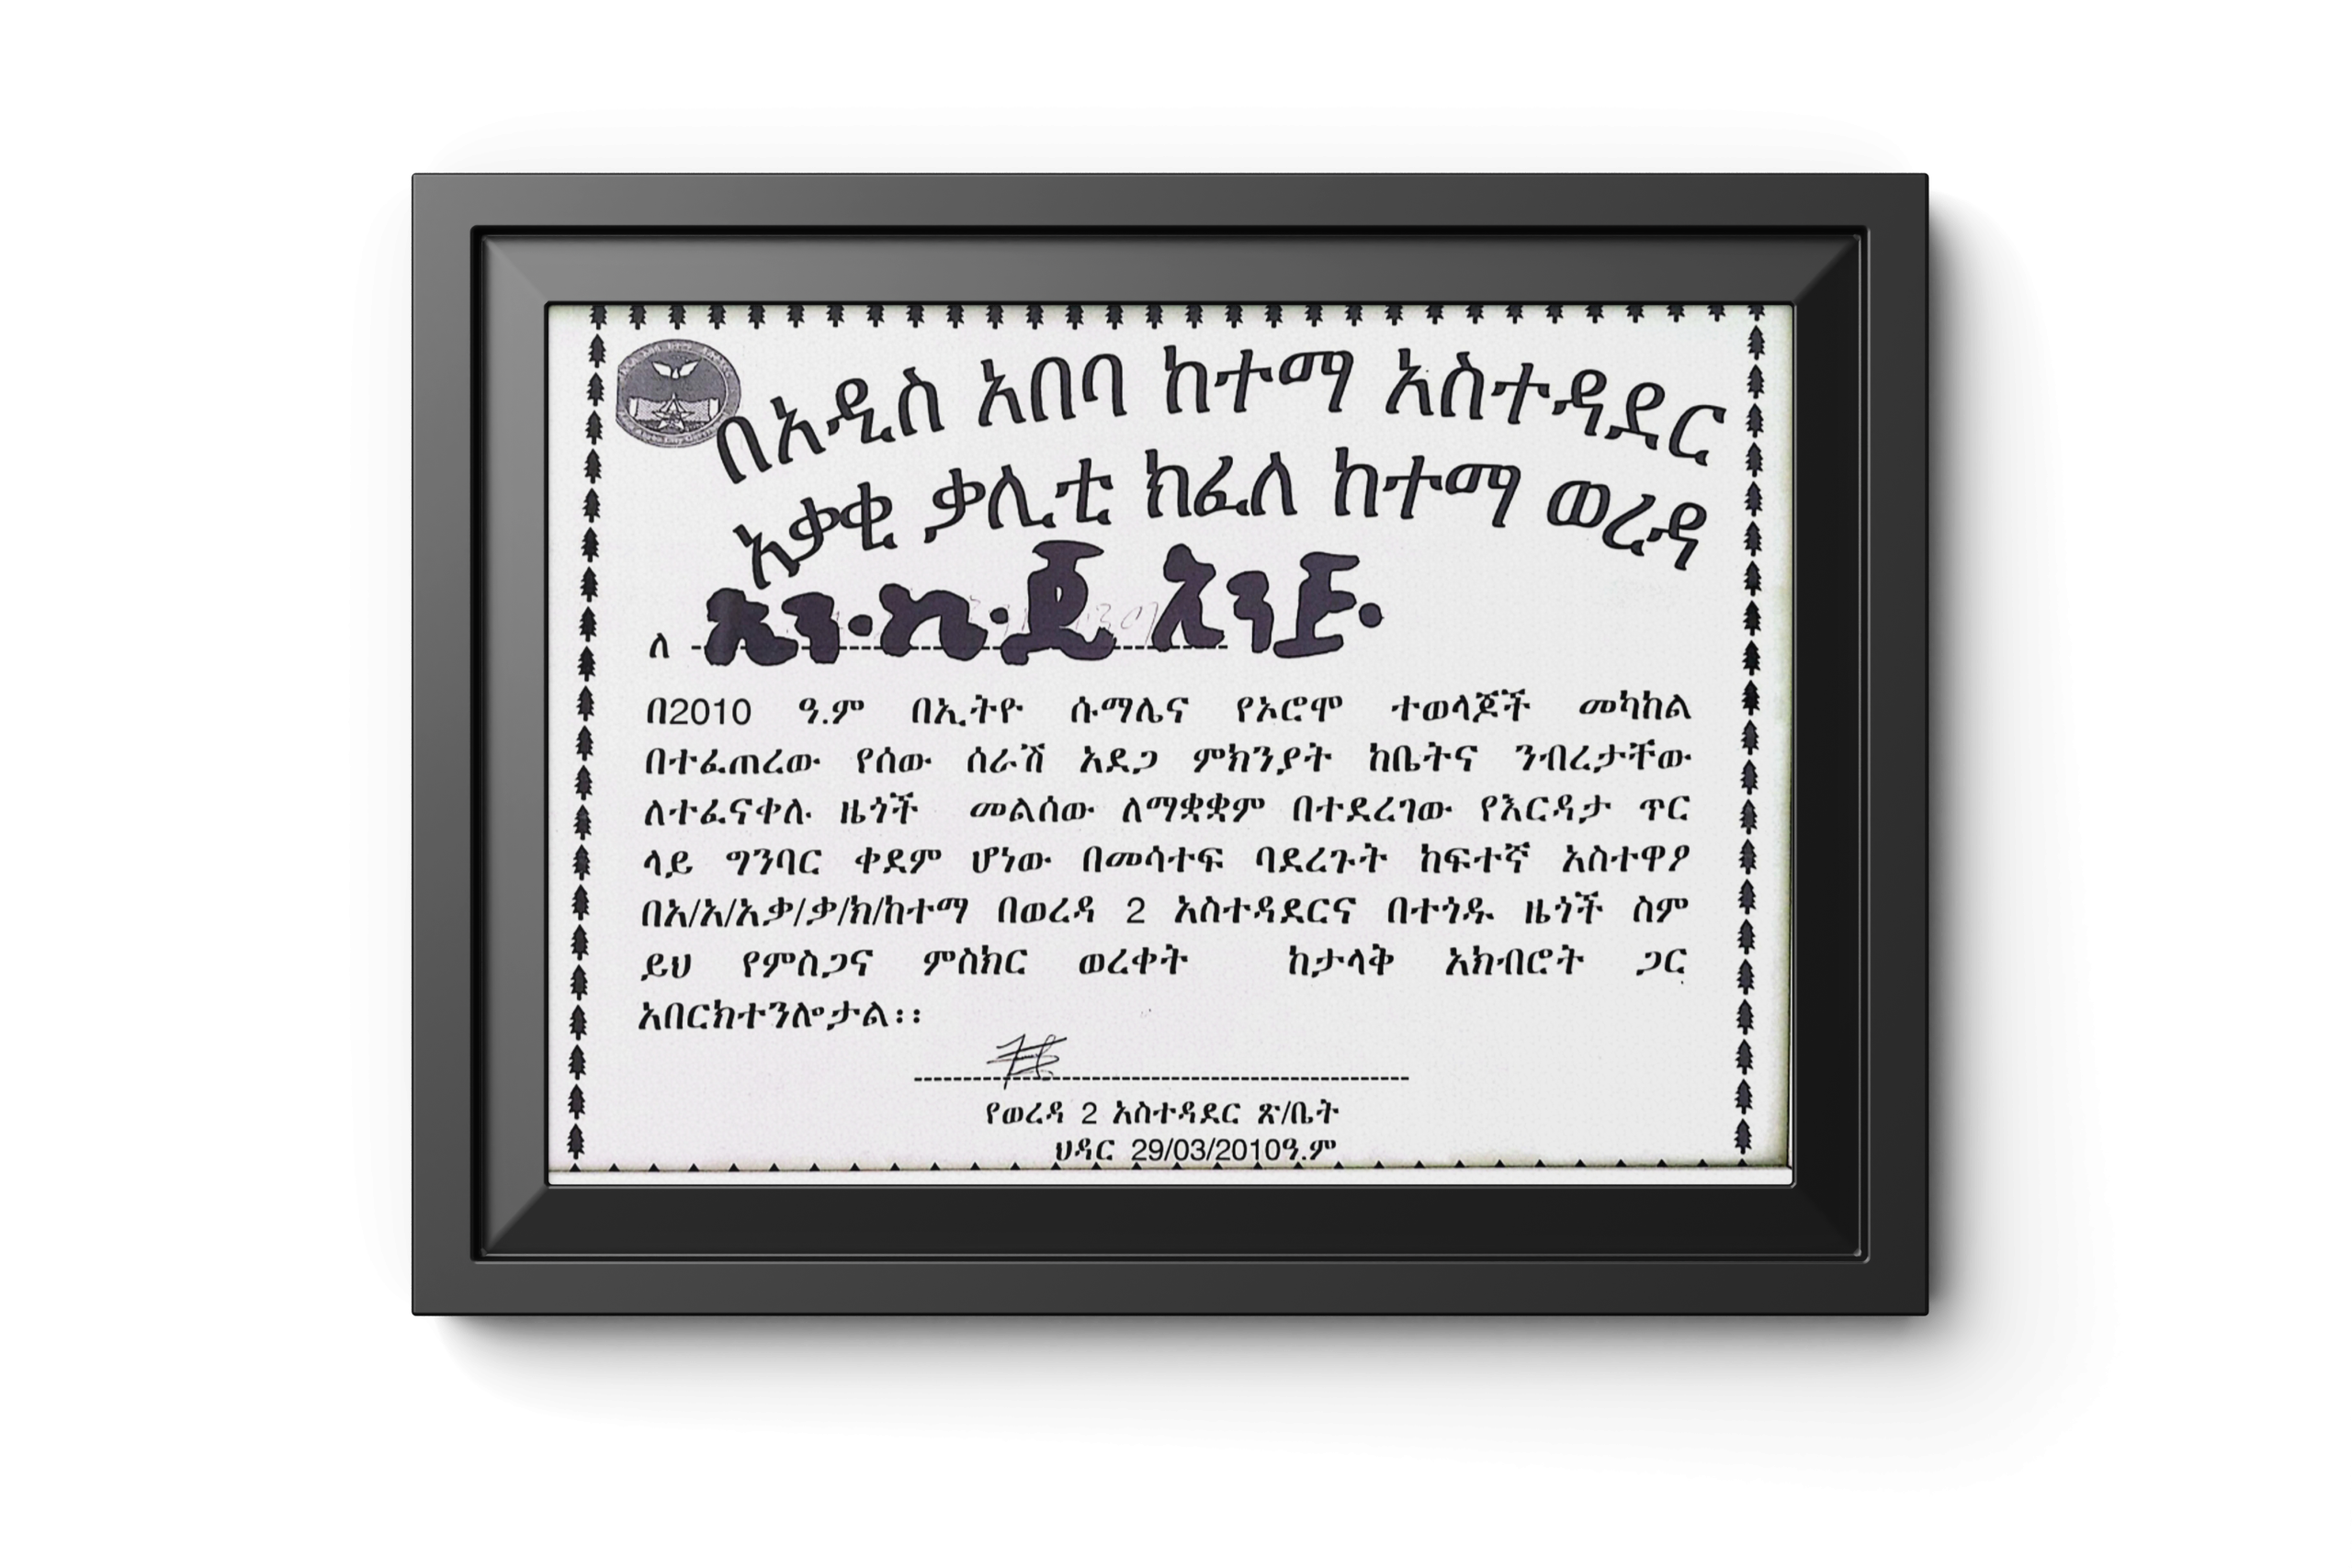 በአዲስ አበባ ከተማ አስተዳደር
አቃቂ ቃሊቲ ክፈለ ከተማ ወረዳ
ለ
በ2010 ዓ.ም በኢትዮ ሱማሌና የኦሮሞ ተወላጆች መካከል
በተፈጠረው የሰው ሰራሽ አደጋ ምክንያት ከቤትና ንብረታቸው
ለተፈናቀሉ ዜጎች መልሰው ለማቋቋም በተደረገው የእርዳታ ጥር
ላይ ግንባር ቀደም ሆነው በመሳተፍ ባደረጉት ከፍተኛ አስተዋዖ
በአ/አ/አቃ/ቃ/ክ/ከተማ በወረዳ 2 አስተዳደርና በተጎዱ ዜጎች ስም
ይህ የምስጋና ምስክር ወረቀት ከታላቅ አክብሮት ጋር
አበርክተንሎታል፡፡
የወረዳ 2 አስተዳደር ጽ/ቤት
ህዳር 29/03/2010ዓ.ም